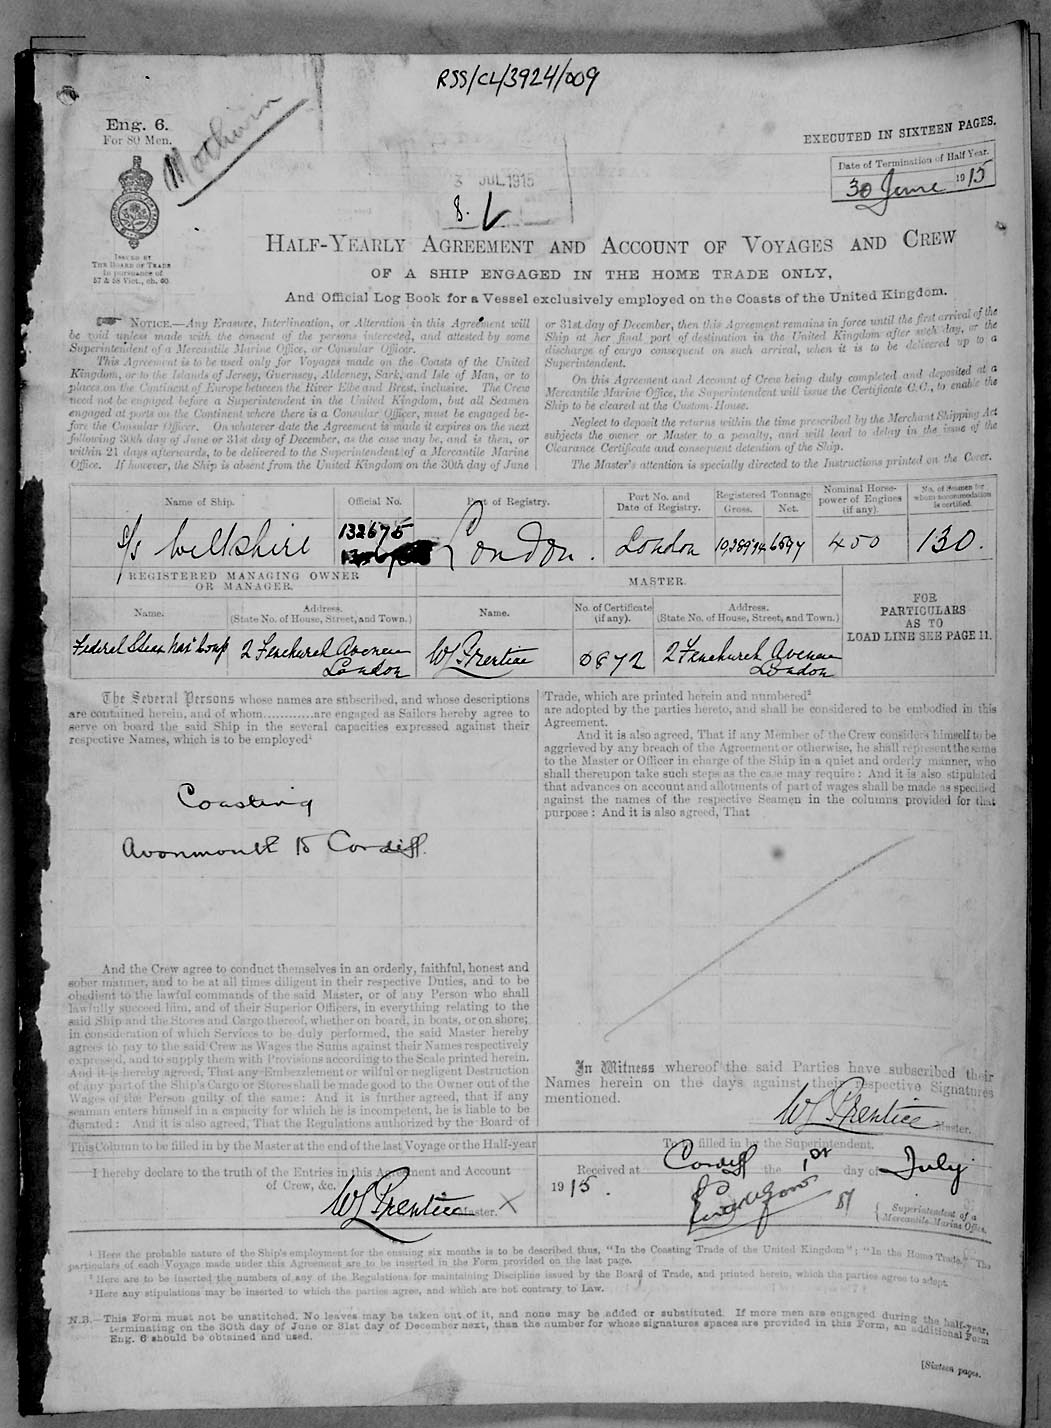 RSS/CL/3924/009
Eng. 6.
For 80 Men.
EXECUTED IN SIXTEEN PAGES.
Date of Termination of Half Year.
30 June 1915
3 JUL 1915
8.
ISSUED BY
THE BOARD OF TRADE
In pursuance of
57 & 58 Vict., ch. 60
HALF-YEARLY AGREEMENT AND ACCOUNT OF VOYAGES AND CREW
OF A SHIP ENGAGED IN THE HOME TRADE ONLY,
And Official Log Book for a Vessel exclusively employed on the Coasts of the United Kingdom.
NOTICE.—Any Erasure, Interlineation, or Alteration in this Agreement will
be void unless made with the consent of the persons interested, and attested by some
Superintendent of a Mercantile Marine Office, or Consular Officer.
This Agreement is to be used only for Voyages made on the Coasts of the United
Kingdom, or to the Islands of Jersey, Guernsey, Alderney, Sark, and Isle of Man, or to
places on the Continent of Europe between the River Elbe and Brest, inclusive. The Crew
need not be engaged before a Superintendent in the United Kingdom, but all Seamen
engaged at ports on the Continent where there is a Consular Officer, must be engaged be-
fore the Consular Officer. On whatever date the Agreement is made it expires on the next
following 30th day of June or 31st day of December, as the case may be, and is then, or
within 21 days afterwards, to be delivered to the Superintendent of a Mercantile Marine
Office. If however, the Ship is absent from the United Kingdom on the 30th day of June
or 31st day of December, then this Agreement remains in force until the first arrival of the
Ship at her final port of destination in the United Kingdom after such day, or the
discharge of cargo consequent on such arrival, when it is to be delivered up to a
Superintendent.
On this Agreement and Account of Crew being duly completed and deposited at a
Mercantile Marine Office, the Superintendent will issue the Certificate C.C., to enable the
Ship to be cleared at the Custom-House.
Neglect to deposit the returns within the time prescribed by the Merchant Shipping Act
subjects the owner or Master to a penalty, and will lead to delay in the issue of the
Clearance Certificate and consequent detention of the Ship.
The Master's attention is specially directed to the Instructions printed on the Cover.
Name of Ship. Official No. Port of Registry. Port No. and Date of Registry. Registered Tonnage Gross. Net. Nominal Horse-power of Engines (if any). No. of Seamen for whom accommodation is certified.
s/s Wiltshire 132675 London. London 6597 400 130.
REGISTERED MANAGING OWNER
OR MANAGER.
MASTER.
FOR
PARTICULARS
AS TO
LOAD LINE SEE PAGE 11.
Name. Address. (State No. of House, Street, and Town.) Name. No. of Certificate (if any). Address. (State No. of House, Street, and Town.)
Federal Steam Nav Comp 2 Fenchurch Avenue London WL Prentice 0872 2 Fenchurch Avenue London
The Several Persons whose names are subscribed, and whose descriptions
are contained herein, and of whom............are engaged as Sailors hereby agree to
serve on board the said Ship in the several capacities expressed against their
respective Names, which is to be employed¹
Coasting
Avonmouth to Cardiff.
And the Crew agree to conduct themselves in an orderly, faithful, honest and
sober manner, and to be at all times diligent in their respective Duties, and to be
obedient to the lawful commands of the said Master, or of any Person who shall
lawfully succeed him, and of their Superior Officers, in everything relating to the
said Ship and the Stores and Cargo thereof, whether on board, in boats, or on shore;
in consideration of which Services to be duly performed, the said Master hereby
agrees to pay to the said Crew as Wages the Sums against their Names respectively
expressed, and to supply them with Provisions according to the Scale printed herein.
And it is hereby agreed, That any Embezzlement or wilful or negligent Destruction
of any part of the Ship's Cargo or Stores shall be made good to the Owner out of the
Wages of the Person guilty of the same: And it is further agreed, that if any
seaman enters himself in a capacity for which he is incompetent, he is liable to be
disrated: And it is also agreed, That the Regulations authorized by the Board of
Trade, which are printed herein and numbered²
are adopted by the parties hereto, and shall be considered to be embodied in this
Agreement.
And it is also agreed, That if any Member of the Crew considers himself to be
aggrieved by any breach of the Agreement or otherwise, he shall represent the same
to the Master or Officer in charge of the Ship in a quiet and orderly manner, who
shall thereupon take such steps as the case may require: And it is also stipulated
that advances on account and allotments of part of wages shall be made as specified
against the names of the respective Seamen in the columns provided for that
purpose: And it is also agreed, That
In Witness whereof the said Parties have subscribed their
Names herein on the days against their respective Signatures
mentioned.
WL Prentice Master.
This Column to be filled in by the Master at the end of the last Voyage or the Half-year
I hereby declare to the truth of the Entries in this Agreement and Account
of Crew, &c.
WL Prentice Master.
To be filled in by the Superintendent.
Received at Cardiff the 1st day of July
1915.
Superintendent of a
Mercantile Marine Office.
¹ Here the probable nature of the Ship's employment for the ensuing six months is to be described thus, "In the Coasting Trade of the United Kingdom"; "In the Home Trade." The
particulars of each Voyage made under this Agreement are to be inserted in the Form provided on the last page.
² Here are to be inserted the numbers of any of the Regulations for maintaining Discipline issued by the Board of Trade, and printed herein, which the parties agree to adopt.
³ Here any stipulations may be inserted to which the parties agree, and which are not contrary to Law.
N.B.—This Form must not be unstitched. No leaves may be taken out of it, and none may be added or substituted. If more men are engaged during the half-year,
terminating on the 30th day of June or 31st day of December next, than the number for whose signatures spaces are provided in this Form, an additional Form
Eng. 6 should be obtained and used.
[Sixteen pages.